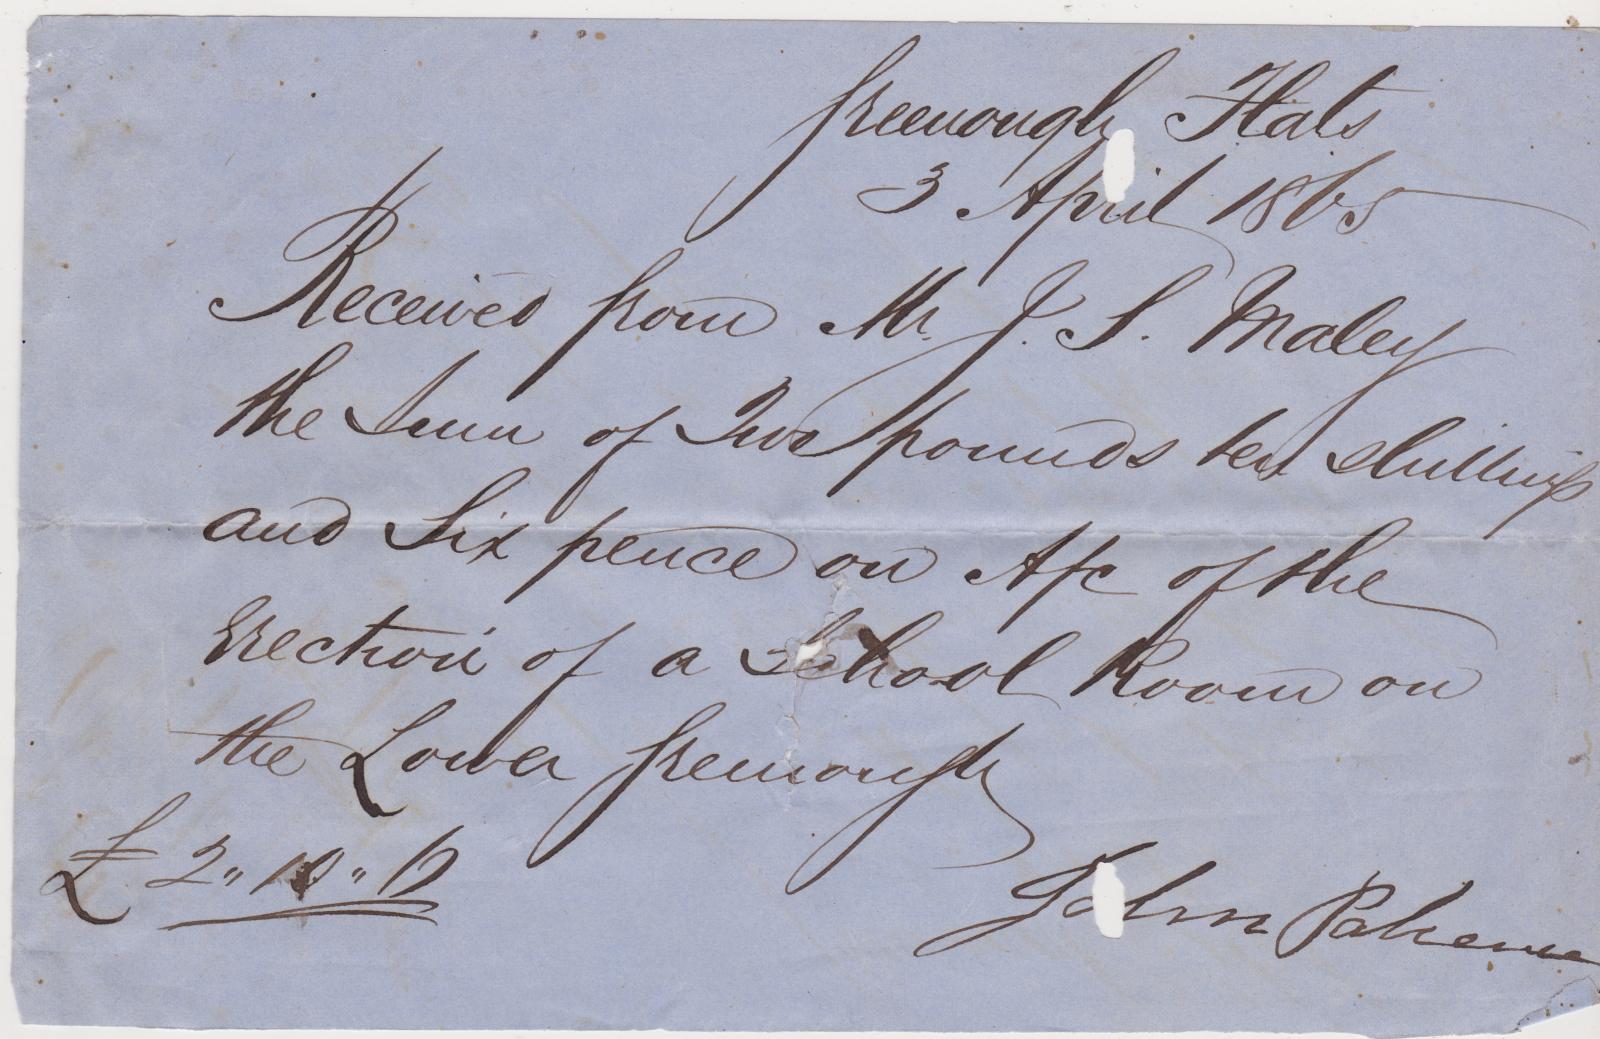 Greenough Flats
3 April 1865
Received from Mr. J. S. Maley
the Sum of Two pounds ten shillings
and Six pence on A/c of the
Erection of a School Room on
the Lower Greenough
£ 2 " 10 " 6
John